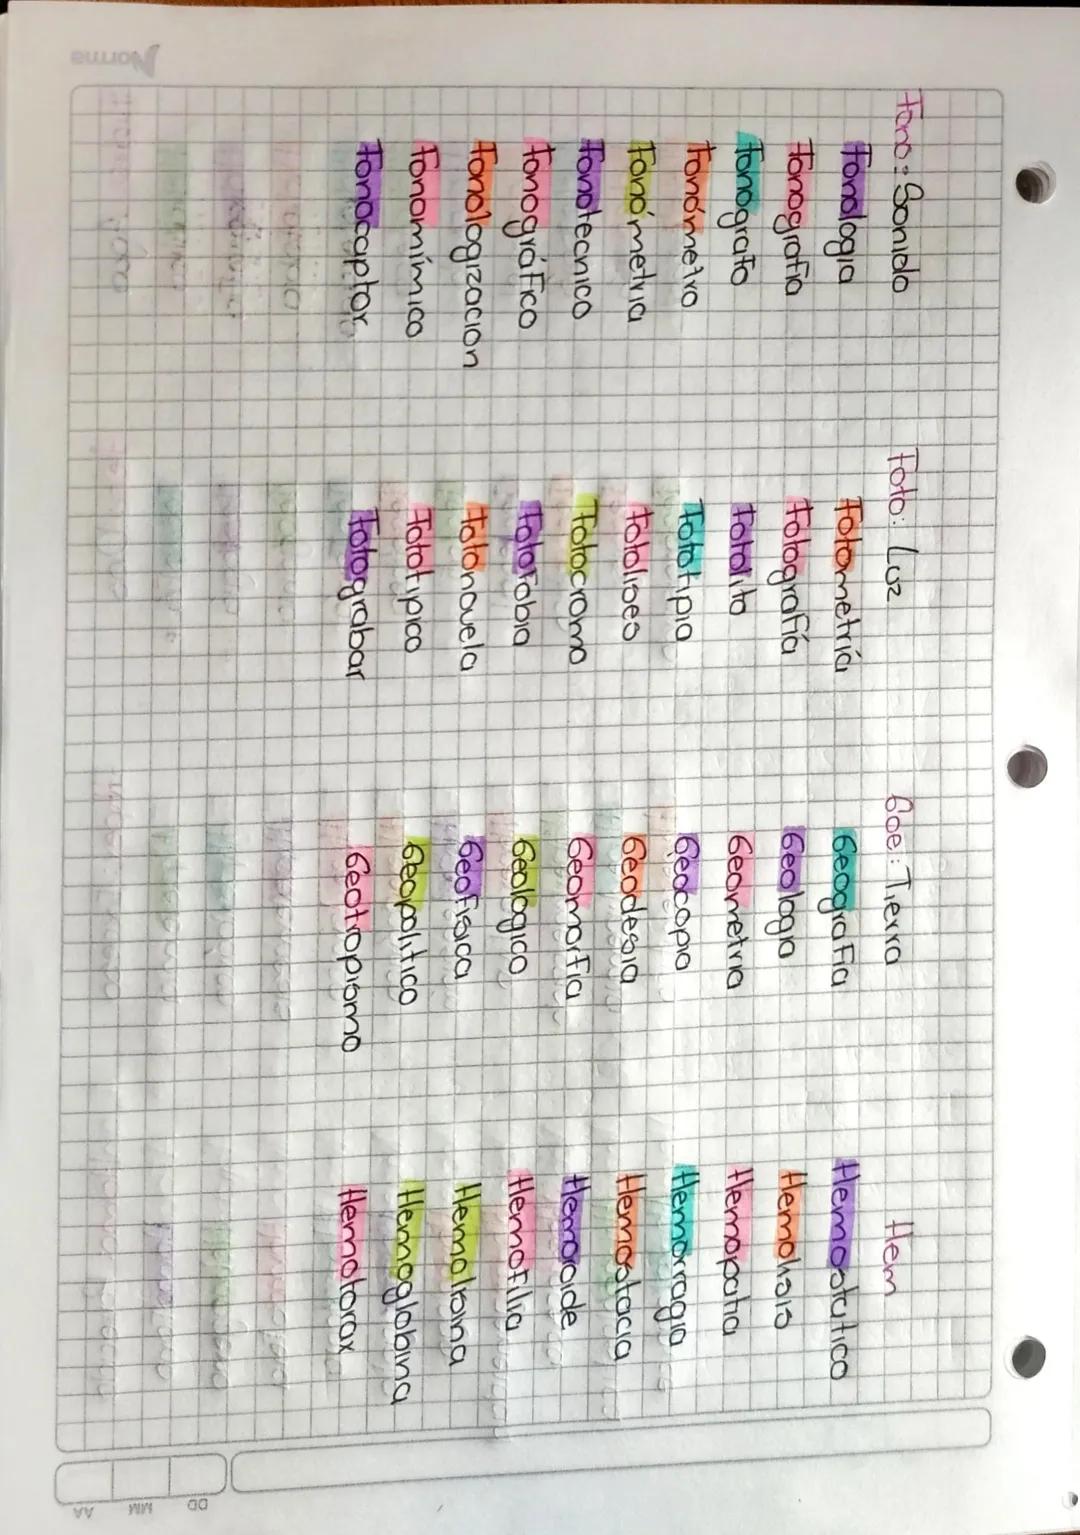 Fono: Sonido
Fonologia
Fonografia
Fonografo
Fonómetro
Fonómetria
Fonotecnico
Fonográfico
Fonologizacion
Fonomímico
Fonocaptor
Foto: Luz
Fotometriá
Fotografía
Fotolito
Fototipia
Fotolises
Fotocromo
Fotofobia
Fotonovela
Fototipico
Fotograbar
Goe: Tierra
Geografia
Geologia
Geometria
Geocopia
Geodesia
Geomorfia
Geologico
Geofisica
Geopolitico
Geotropismo
Hem
Hemostatico
Hemolisis
Hemopatia
Hemorragia
Hemostacia
Hemoroide
Hemofilia
Hemolsina
Hemoglobina
Hemotorax
Norma
DD
MM
AA